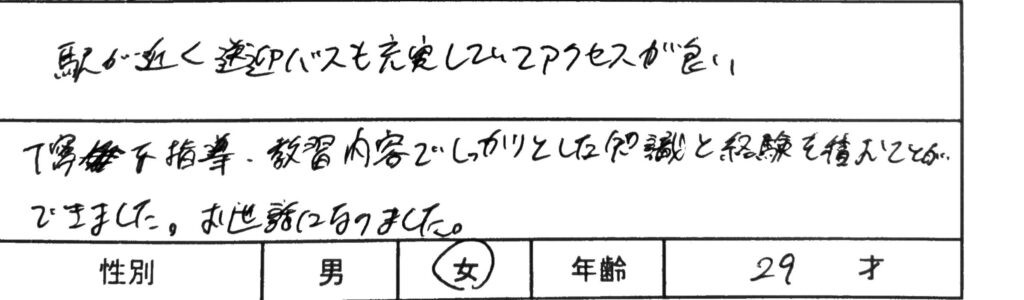 駅が近く送迎バスも充実していてアクセスが良い
丁寧な指導、教習内容でしっかりとした知識と経験を積むことが
できました。お世話になりました。
性別 男 女 年齢 29 才